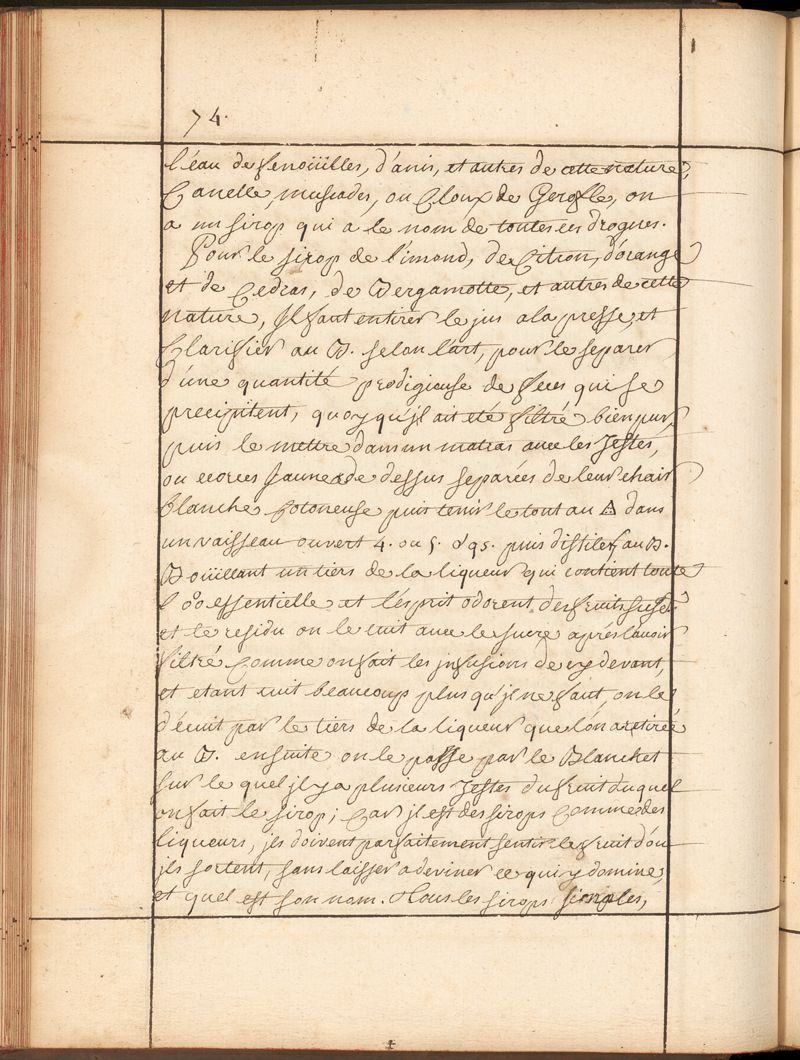 74.
l'eau de fenoüilles, d'anis, et autres de cette nature,
Canelle muscades, ou Cloux de Gerofle, on
a un sirop qui a le nom de toutes ces drogues.
Pour le sirop de limond, de Citron, d'orange
et de Cedras, de Bergamotte, et autres de cette
nature, Jl faut en tirer le jus a la presse, et
Clarifier au B. selon l'art, pour le separer
d'une quantité prodigieuse de feces qui se
precipitent, quoyqu'jl ait eté filtré bien pur,
puis le mettre dans un matras avec les Zestes,
ou ecorces Jaunes de dessus separées de leur chair
blanche Cotoneuse puis tenir le tout au dans
un vaisseau ouvert 4. ou 5. puis distiler au B.
Boüillant un tiers de la liqueur qui contient toute
l' essentielle et l'esprit odorent des fruits susd.
et le residu on le cuit avec le sucre aprés l'avoir
filtré Comme on fait les jnfusions de cy devant,
et etant cuit beaucoup plus qu'jl ne faut, on le
décuit par le tiers de la liqueur que l'on a retirée
au B. ensuite on le passe par le Blanchet
sur le quel jl y a plusieurs Zestes du fruit duquel
on fait le sirop; Car jl est des sirops Comme des
liqueurs, jls doivent parfaitement sentir le fruit d'ou
jls sortent, sans laisser a deviner ce qui y domine,
et quel est son nom. Tous les sirops simples,